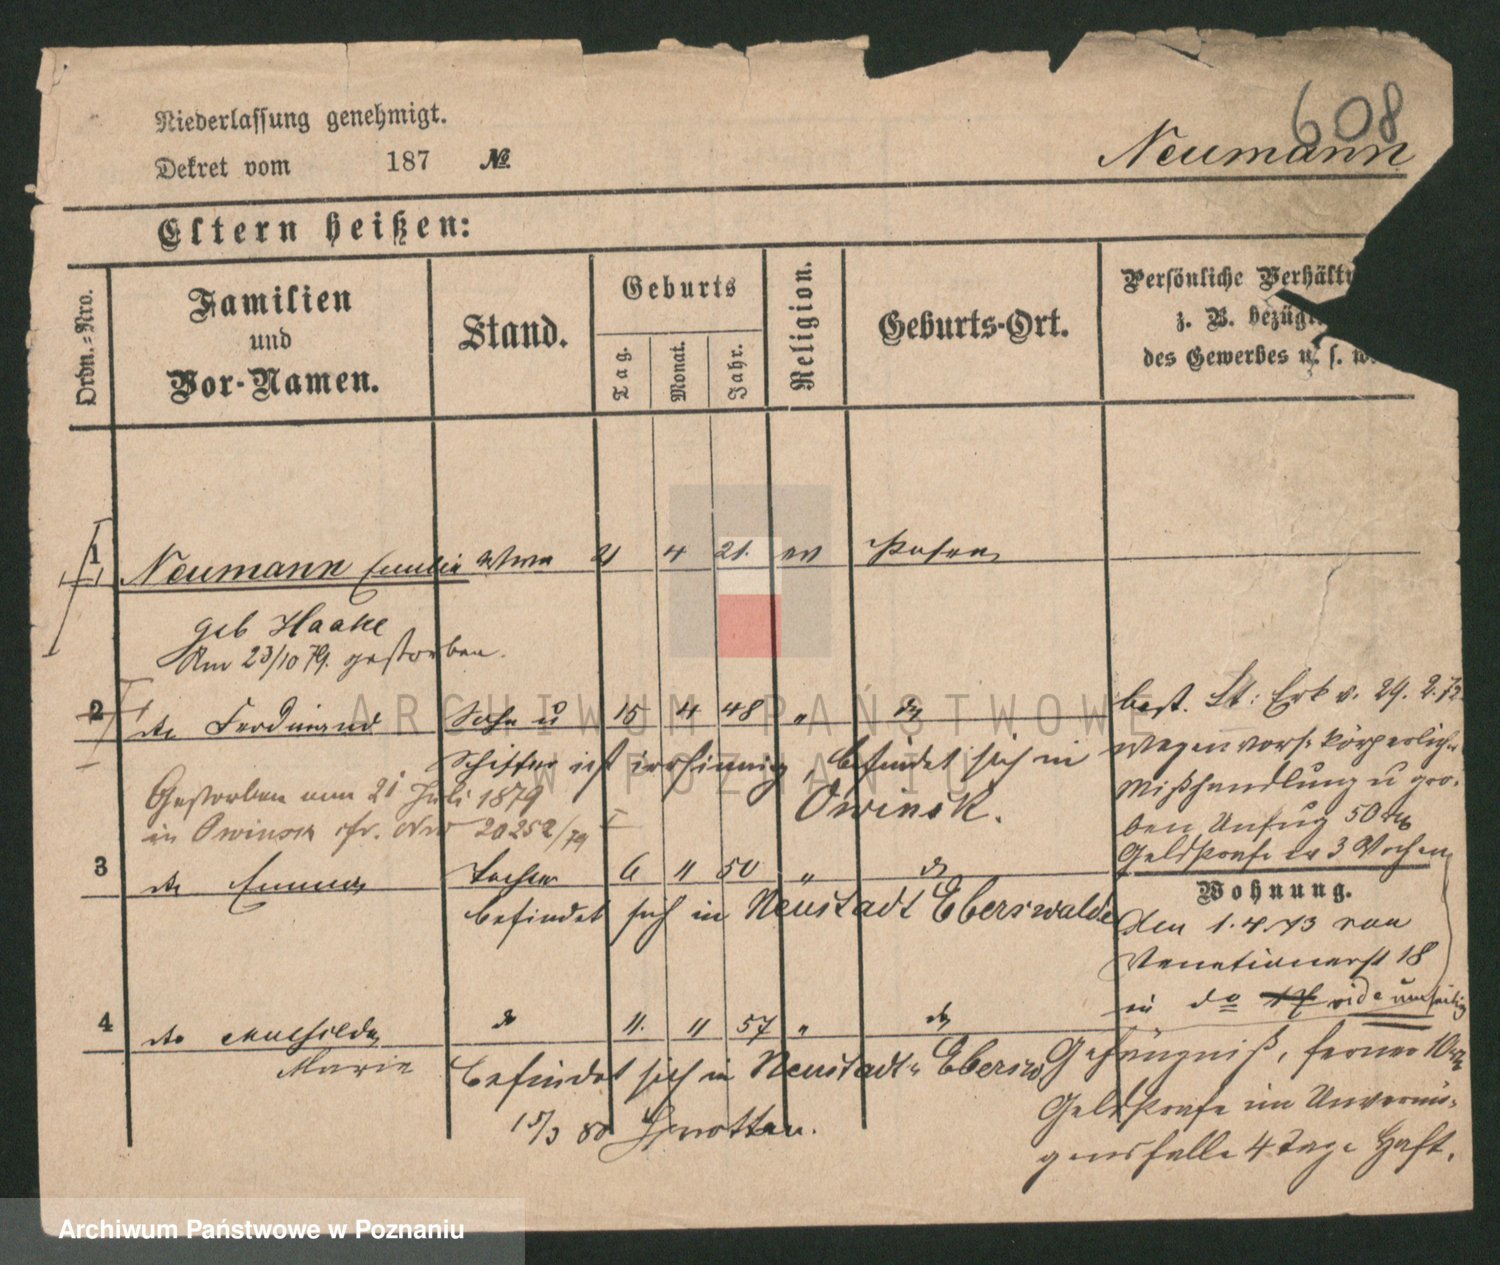 608
Niederlassung genehmigt.
Neumann
Dekret vom 187 №
Eltern heißen:
Ordn.-Nro.
Familien und Vor-Namen.
Stand.
Geburts
Tag. Monat. Jahr.
Religion.
Geburts-Ort.
Persönliche Verhält
z. B. bezügl.
des Gewerbes u. s. w.
1 Neumann Emilie Wwe 21 4 21. ev Posen
geb Haake
Am 23/10 79. gestorben.
2 do Ferdinand Sohn u 15 4 48 " do
Schiffer ist irrsinnig, befindet sich in
Owinsk.
Gestorben am 21 Juli 1879
in Owinsk cfr. Nro 20252/79
3 do Emma Tochter 6 11 50 " do
befindet sich in Neustadt Eberswalde
4 do Mathilde do 11. 11 57 " do
Marie
befindet sich in Neustadt Ebersw
15/3 80
best. lt: Erk v. 29. 2. 72
wegen vors. körperlicher
Mißhandlung u gro-
ben Unfug 50
Geldstrafe ev 3 Wochen
Wohnung.
Den 1.4.73 von
Venetianerst 18
in do 17 vide umseitig
Gefängniß, ferner 10
Geldstrafe im Unvermö-
gensfalle 4 Tage Haft.
ARCHIWUM PAŃSTWOWE
W POZNANIU
Archiwum Państwowe w Poznaniu